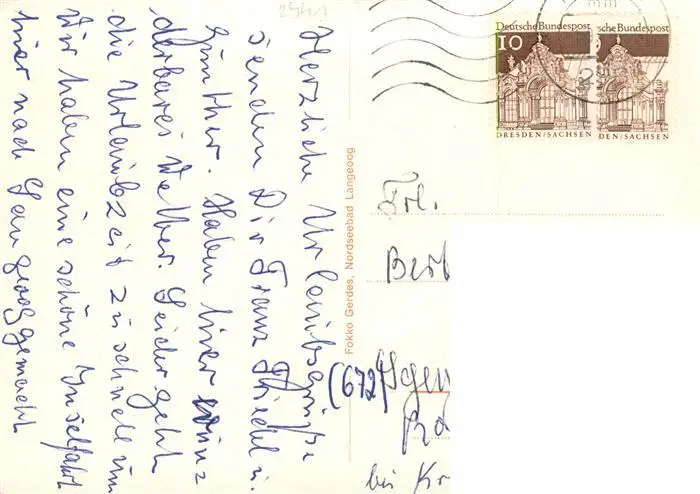 Herzliche Urlaubsgrüße
senden Dir Franz Friedel u.
Günther. Haben hier wunz
derbares Wetter. Leider geht
die Urlaubszeit zu schnell um
Wir haben eine schöne Inselfahrt
hier nach Langeoog gemacht
Fokko Gerdes, Nordseebad Langeoog
Deutsche Bundespost
10
DRESDEN/SACHSEN
sche Bundespost
DEN/SACHSEN
Frl.
Berb
(672)
bei Kr